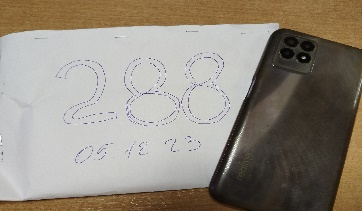 288
05 12 23